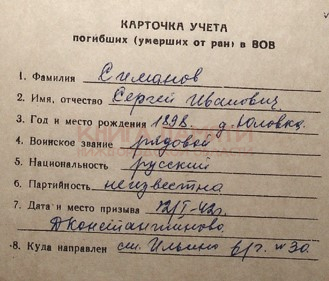 КАРТОЧКА УЧЕТА
погибших (умерших от ран) в ВОВ
1. Фамилия Симанов
2. Имя, отчество Сергей Иванович
3. Год и место рождения 1898. д. Юловка
4. Воинское звание рядовой
5. Национальность русский
6. Партийность неизвестна
7. Дата и место призыва 12/I-42г.
Д Константиново
8. Куда направлен ст. Ильино в/ч. № 30.
КНИГА ПАМЯТИ